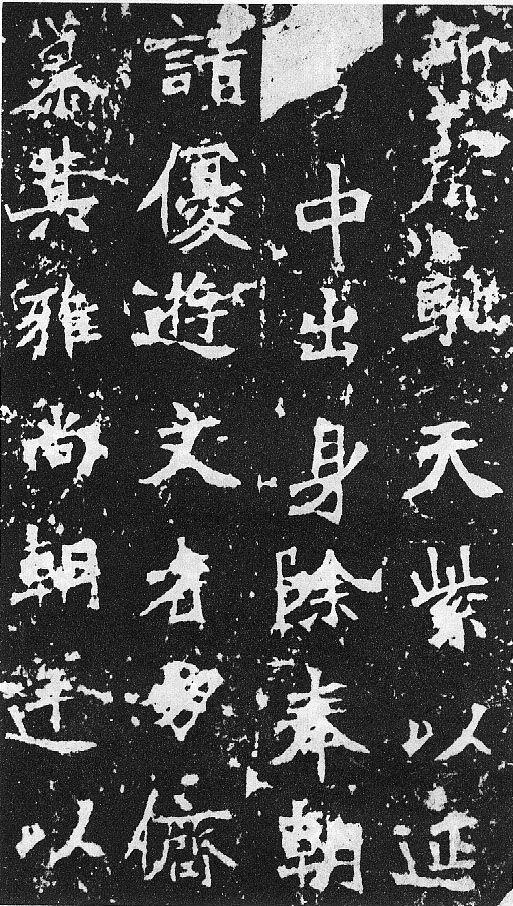 馳天紫以延
中出身除奉朝
請優遊文省朋儕
慕其雅尚朝廷以